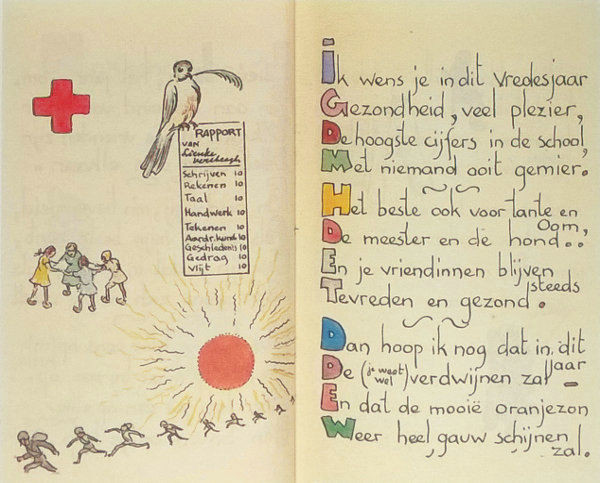 RAPPORT
VAN
Lieneke
Versteegh
Schrijven 10
Rekenen 10
Taal 10
Handwerk 10
Tekenen 10
Aardr.kunde 10
Geschiedenis 10
Gedrag 10
Vlijt 10
Ik wens je in dit Vredesjaar
Gezondheid, veel plezier,
De hoogste cijfers in de school,
Met niemand ooit gemier.
Het beste ook voor tante en
Oom,
De meester en de hond..
En je vriendinnen blijven
steeds
Tevreden en gezond.
Dan hoop ik nog dat in dit
jaar
De (je weet wel) verdwijnen zal
En dat de mooië oranjezon
Weer heel gauw schijnen
zal.